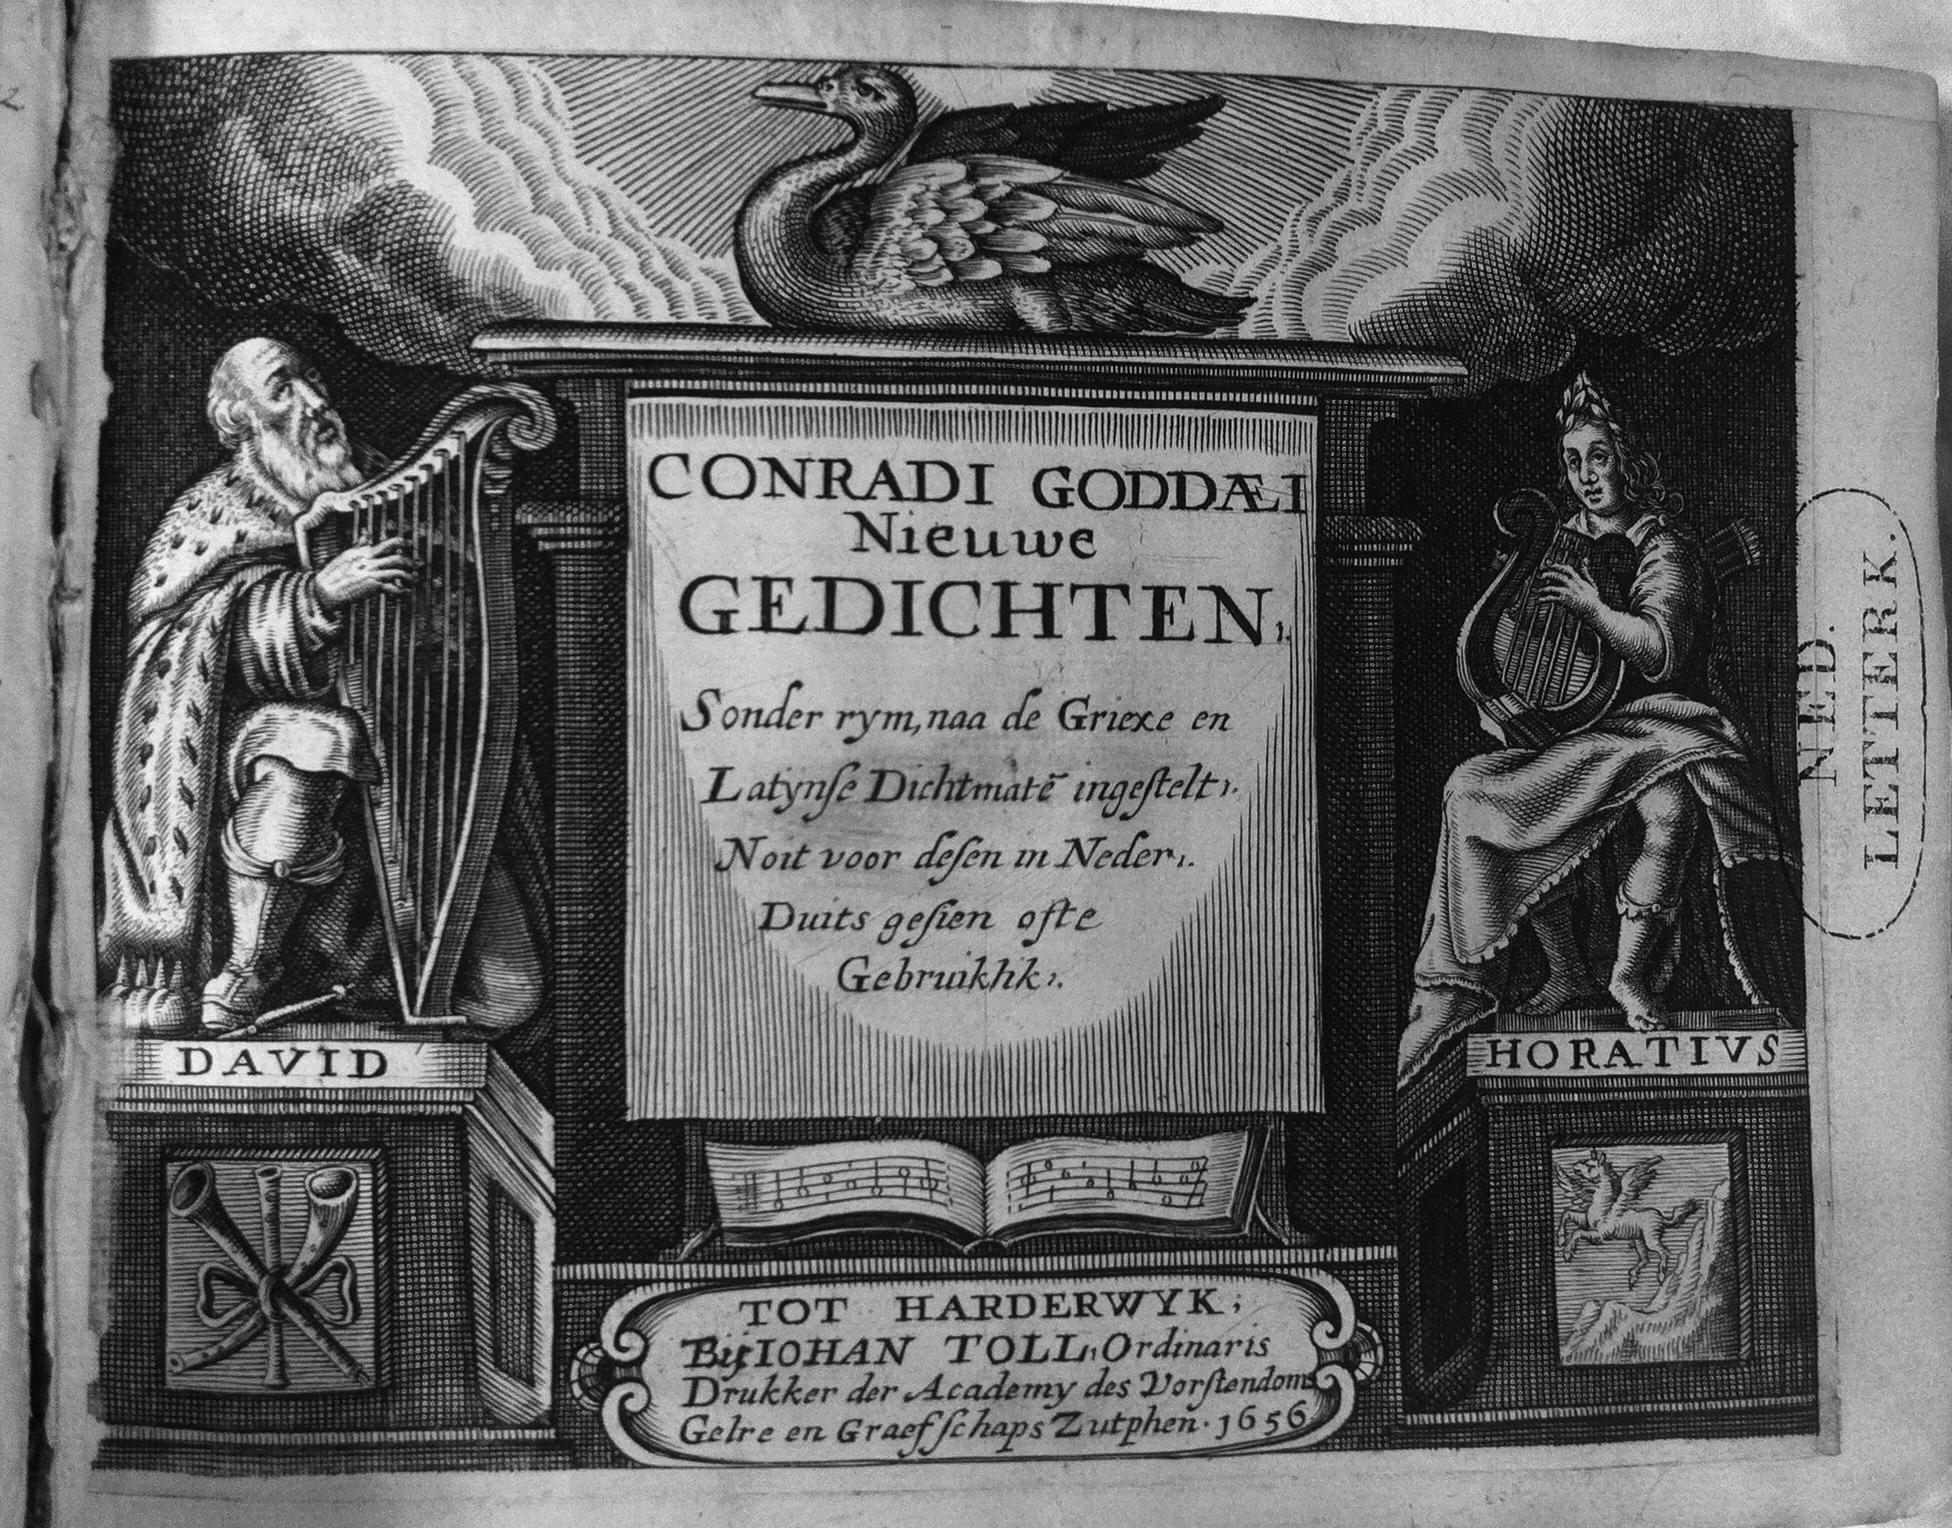 CONRADI GODDÆI
Nieuwe
GEDICHTEN,
Sonder rym, naa de Griexe en
Latynſe Dichtmatē ingeſtelt,
Noit voor deſen in Neder,
Duits geſien ofte
Gebruikhk,
DAVID
HORATIVS
TOT HARDERWYK;
Bij IOHAN TOLL, Ordinaris
Drukker der Academy des Vorſtendoms
Gelre en Graefſchaps Zutphen. 1656
NED.
LETTERK.